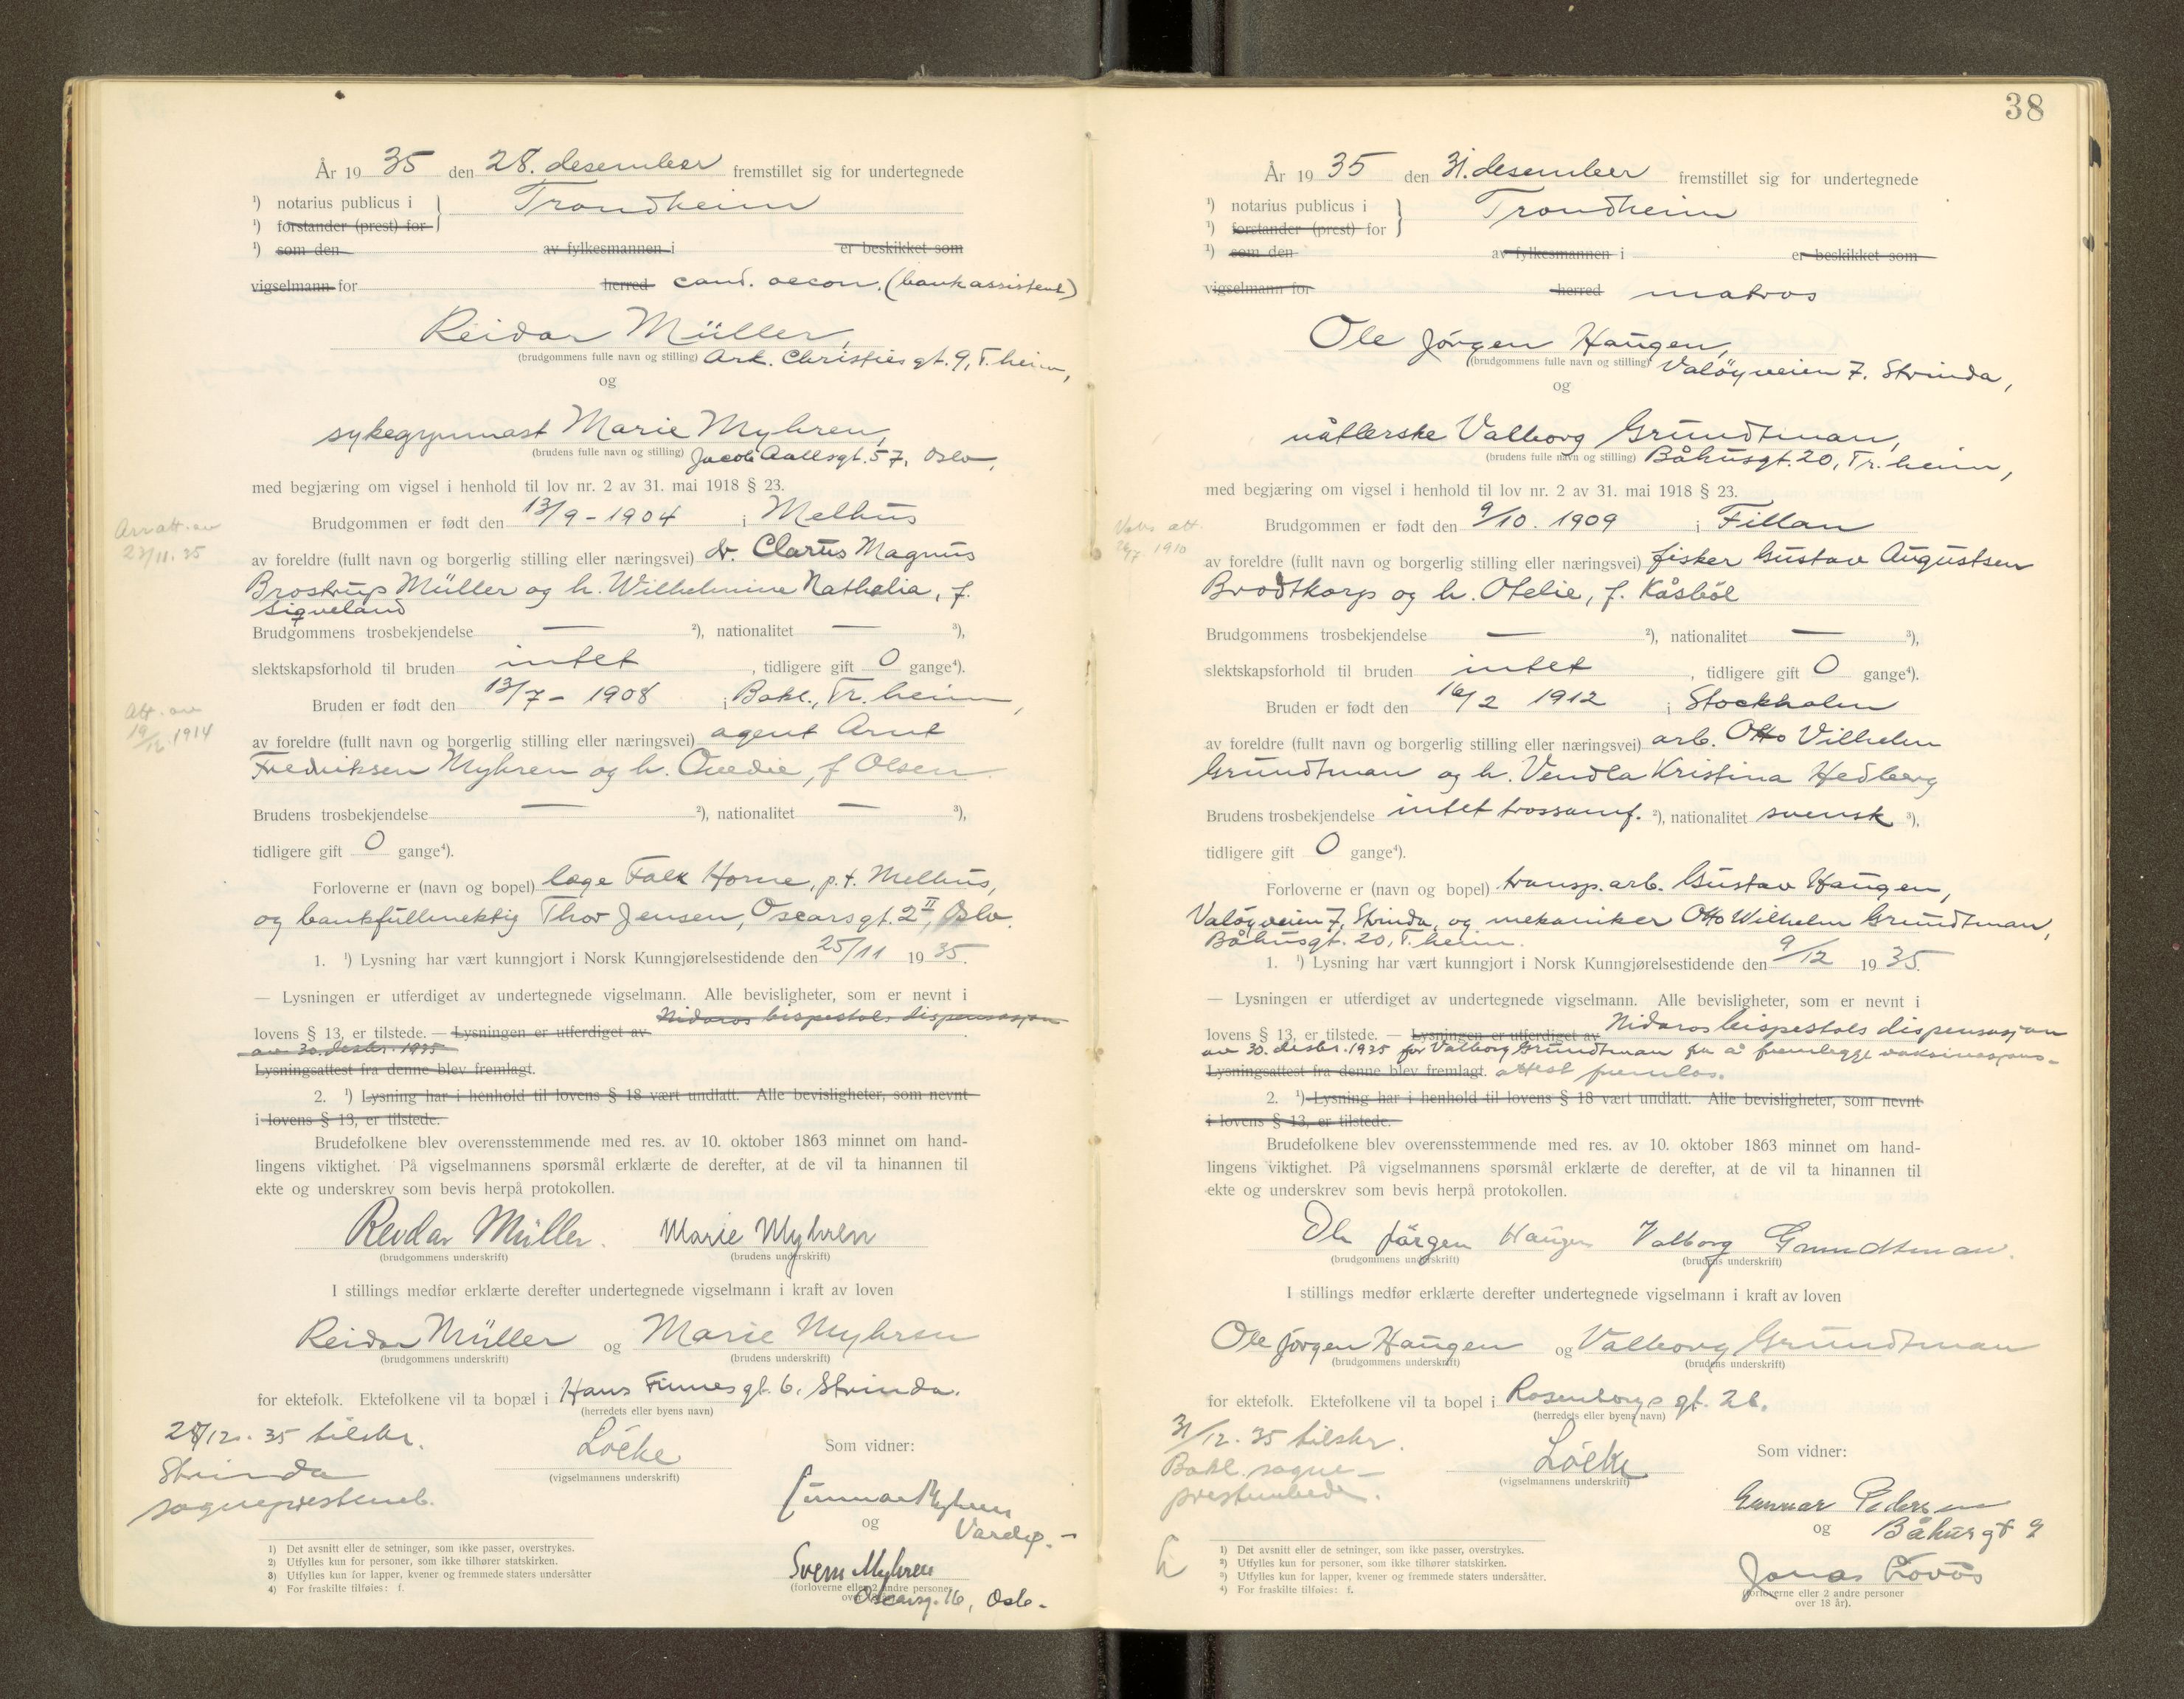 År 19 35 den 28. desember fremstillet sig for undertegnede
¹) notarius publicus i } Trondheim
¹) forstander (prest) for
¹) som den av fylkesmannen i er beskikket som
vigselmann for herred cand. oecon. (bankassistent)
Reidar Müller,
(brudgommens fulle navn og stilling) Ark. Christies gt. 9, T.heim,
og
sykegymnast Marie Myhren,
(brudens fulle navn og stilling) Jacob Aallsgt. 57, Oslo,
med begjæring om vigsel i henhold til lov nr. 2 av 31. mai 1918 § 23.
Brudgommen er født den 13/9 - 1904 i Melhus
att. av
23/11. 35
av foreldre (fullt navn og borgerlig stilling eller næringsvei) dr. Clarus Magnus
Brostrup Müller og h. Wilhelmine Nathalia, f.
Siqveland
Brudgommens trosbekjendelse — ²), nationalitet — ³),
slektskapsforhold til bruden intet, tidligere gift 0 gange⁴).
Bruden er født den 13/7 - 1908 i Bakl., Tr.heim,
Att. av
19/12 1914
av foreldre (fullt navn og borgerlig stilling eller næringsvei) agent Arnt
Fredriksen Myhren og h. Ovedie, f Olsen.
Brudens trosbekjendelse — ²), nationalitet — ³),
tidligere gift 0 gange⁴).
Forloverne er (navn og bopel) læge Falk Horne, p.t. Melhus,
og bankfullmektig Thor Jensen, Oscarsgt. 2 II, Oslo.
1. ¹) Lysning har vært kunngjort i Norsk Kunngjørelsestidende den 25/11 19 35.
— Lysningen er utferdiget av undertegnede vigselmann. Alle bevisligheter, som er nevnt i
Nidaros bispestols dispensasjon
lovens § 13, er tilstede. — Lysningen er utferdiget av
av 30. desbr. 1935
Lysningsattest fra denne blev fremlagt.
2. ¹) Lysning har i henhold til lovens § 18 vært undlatt. Alle bevisligheter, som nevnt
i lovens § 13, er tilstede.
Brudefolkene blev overensstemmende med res. av 10. oktober 1863 minnet om hand-
lingens viktighet. På vigselmannens spørsmål erklærte de derefter, at de vil ta hinannen til
ekte og underskrev som bevis herpå protokollen.
Reidar Müller. Marie Myhren
(brudgommens underskrift) (brudens underskrift)
I stillings medfør erklærte derefter undertegnede vigselmann i kraft av loven
Reidar Müller og Marie Myhren
(brudgommens underskrift) (brudens underskrift)
for ektefolk. Ektefolkene vil ta bopæl i Hans Finnes gt. 6, Strinda.
(herredets eller byens navn)
28/12. 35 tilskr.
Strinda
sogneprestemb.
Löcke
(vigselmannens underskrift)
Som vidner:
Gunnar Myhren
og Vardø. -
Svein Myhren
(forloverne eller 2 andre personer
Oscarsg. 16, Oslo.
1) Det avsnitt eller de setninger, som ikke passer, overstrykes.
2) Utfylles kun for personer, som ikke tilhører statskirken.
3) Utfylles kun for lapper, kvener og fremmede staters undersåtter
4) For fraskilte tilføies: f.
38
År 19 35 den 31. desember fremstillet sig for undertegnede
¹) notarius publicus i } Trondheim
¹) forstander (prest) for
¹) som den av fylkesmannen i er beskikket som
vigselmann for herred matros
Ole Jörgen Haugen,
(brudgommens fulle navn og stilling) Valöyveien 7, Strinda,
og
nåtlerske Valborg Grundtman,
(brudens fulle navn og stilling) Båhusgt. 20, Tr.heim,
med begjæring om vigsel i henhold til lov nr. 2 av 31. mai 1918 § 23.
Brudgommen er født den 9/10. 1909 i Fillan
att.
1910
av foreldre (fullt navn og borgerlig stilling eller næringsvei) fisker Gustav Augustsen
Brodtkorp og h. Otelie, f. Kåsböl
Brudgommens trosbekjendelse — ²), nationalitet — ³),
slektskapsforhold til bruden intet, tidligere gift 0 gange⁴).
Bruden er født den 16/2 1912 i Stockholm
av foreldre (fullt navn og borgerlig stilling eller næringsvei) arb. Otto Vilhelm
Grundtman og h. Vendla Kristina Hedberg
Brudens trosbekjendelse intet trossamf. ²), nationalitet svensk ³),
tidligere gift 0 gange⁴).
Forloverne er (navn og bopel) transp. arb. Gustav Haugen,
Valöyveien 7, Strinda, og mekaniker Otto Wilhelm Grundtman,
Båhusgt. 20, T.heim.
1. ¹) Lysning har vært kunngjort i Norsk Kunngjørelsestidende den 9/12 19 35.
— Lysningen er utferdiget av undertegnede vigselmann. Alle bevisligheter, som er nevnt i
lovens § 13, er tilstede. — Lysningen er utferdiget av Nidaros bispestols dispensasjon
av 30. desbr. 1935 for Valborg Grundtman fra å fremlegge vaksinasjons-
Lysningsattest fra denne blev fremlagt. attest fremlas.
2. ¹) Lysning har i henhold til lovens § 18 vært undlatt. Alle bevisligheter, som nevnt
i lovens § 13, er tilstede.
Brudefolkene blev overensstemmende med res. av 10. oktober 1863 minnet om hand-
lingens viktighet. På vigselmannens spørsmål erklærte de derefter, at de vil ta hinannen til
ekte og underskrev som bevis herpå protokollen.
Ole Jörgen Haugen Valborg Grundtman.
(brudgommens underskrift) (brudens underskrift)
I stillings medfør erklærte derefter undertegnede vigselmann i kraft av loven
Ole Jörgen Haugen og Valborg Grundtman
(brudgommens underskrift) (brudens underskrift)
for ektefolk. Ektefolkene vil ta bopel i Rosenborgs gt. 26.
(herredets eller byens navn)
31/12. 35 tilskr.
Bakl. sogne-
prestembede.
Löcke
(vigselmannens underskrift)
Som vidner:
Gunnar Pedersen
og Båhusgt 9
Jonas Lövås
(forloverne eller 2 andre personer
over 18 år).
1) Det avsnitt eller de setninger, som ikke passer, overstrykes.
2) Utfylles kun for personer, som ikke tilhører statskirken.
3) Utfylles kun for lapper, kvener og fremmede staters undersåtter.
4) For fraskilte tilføies: f.